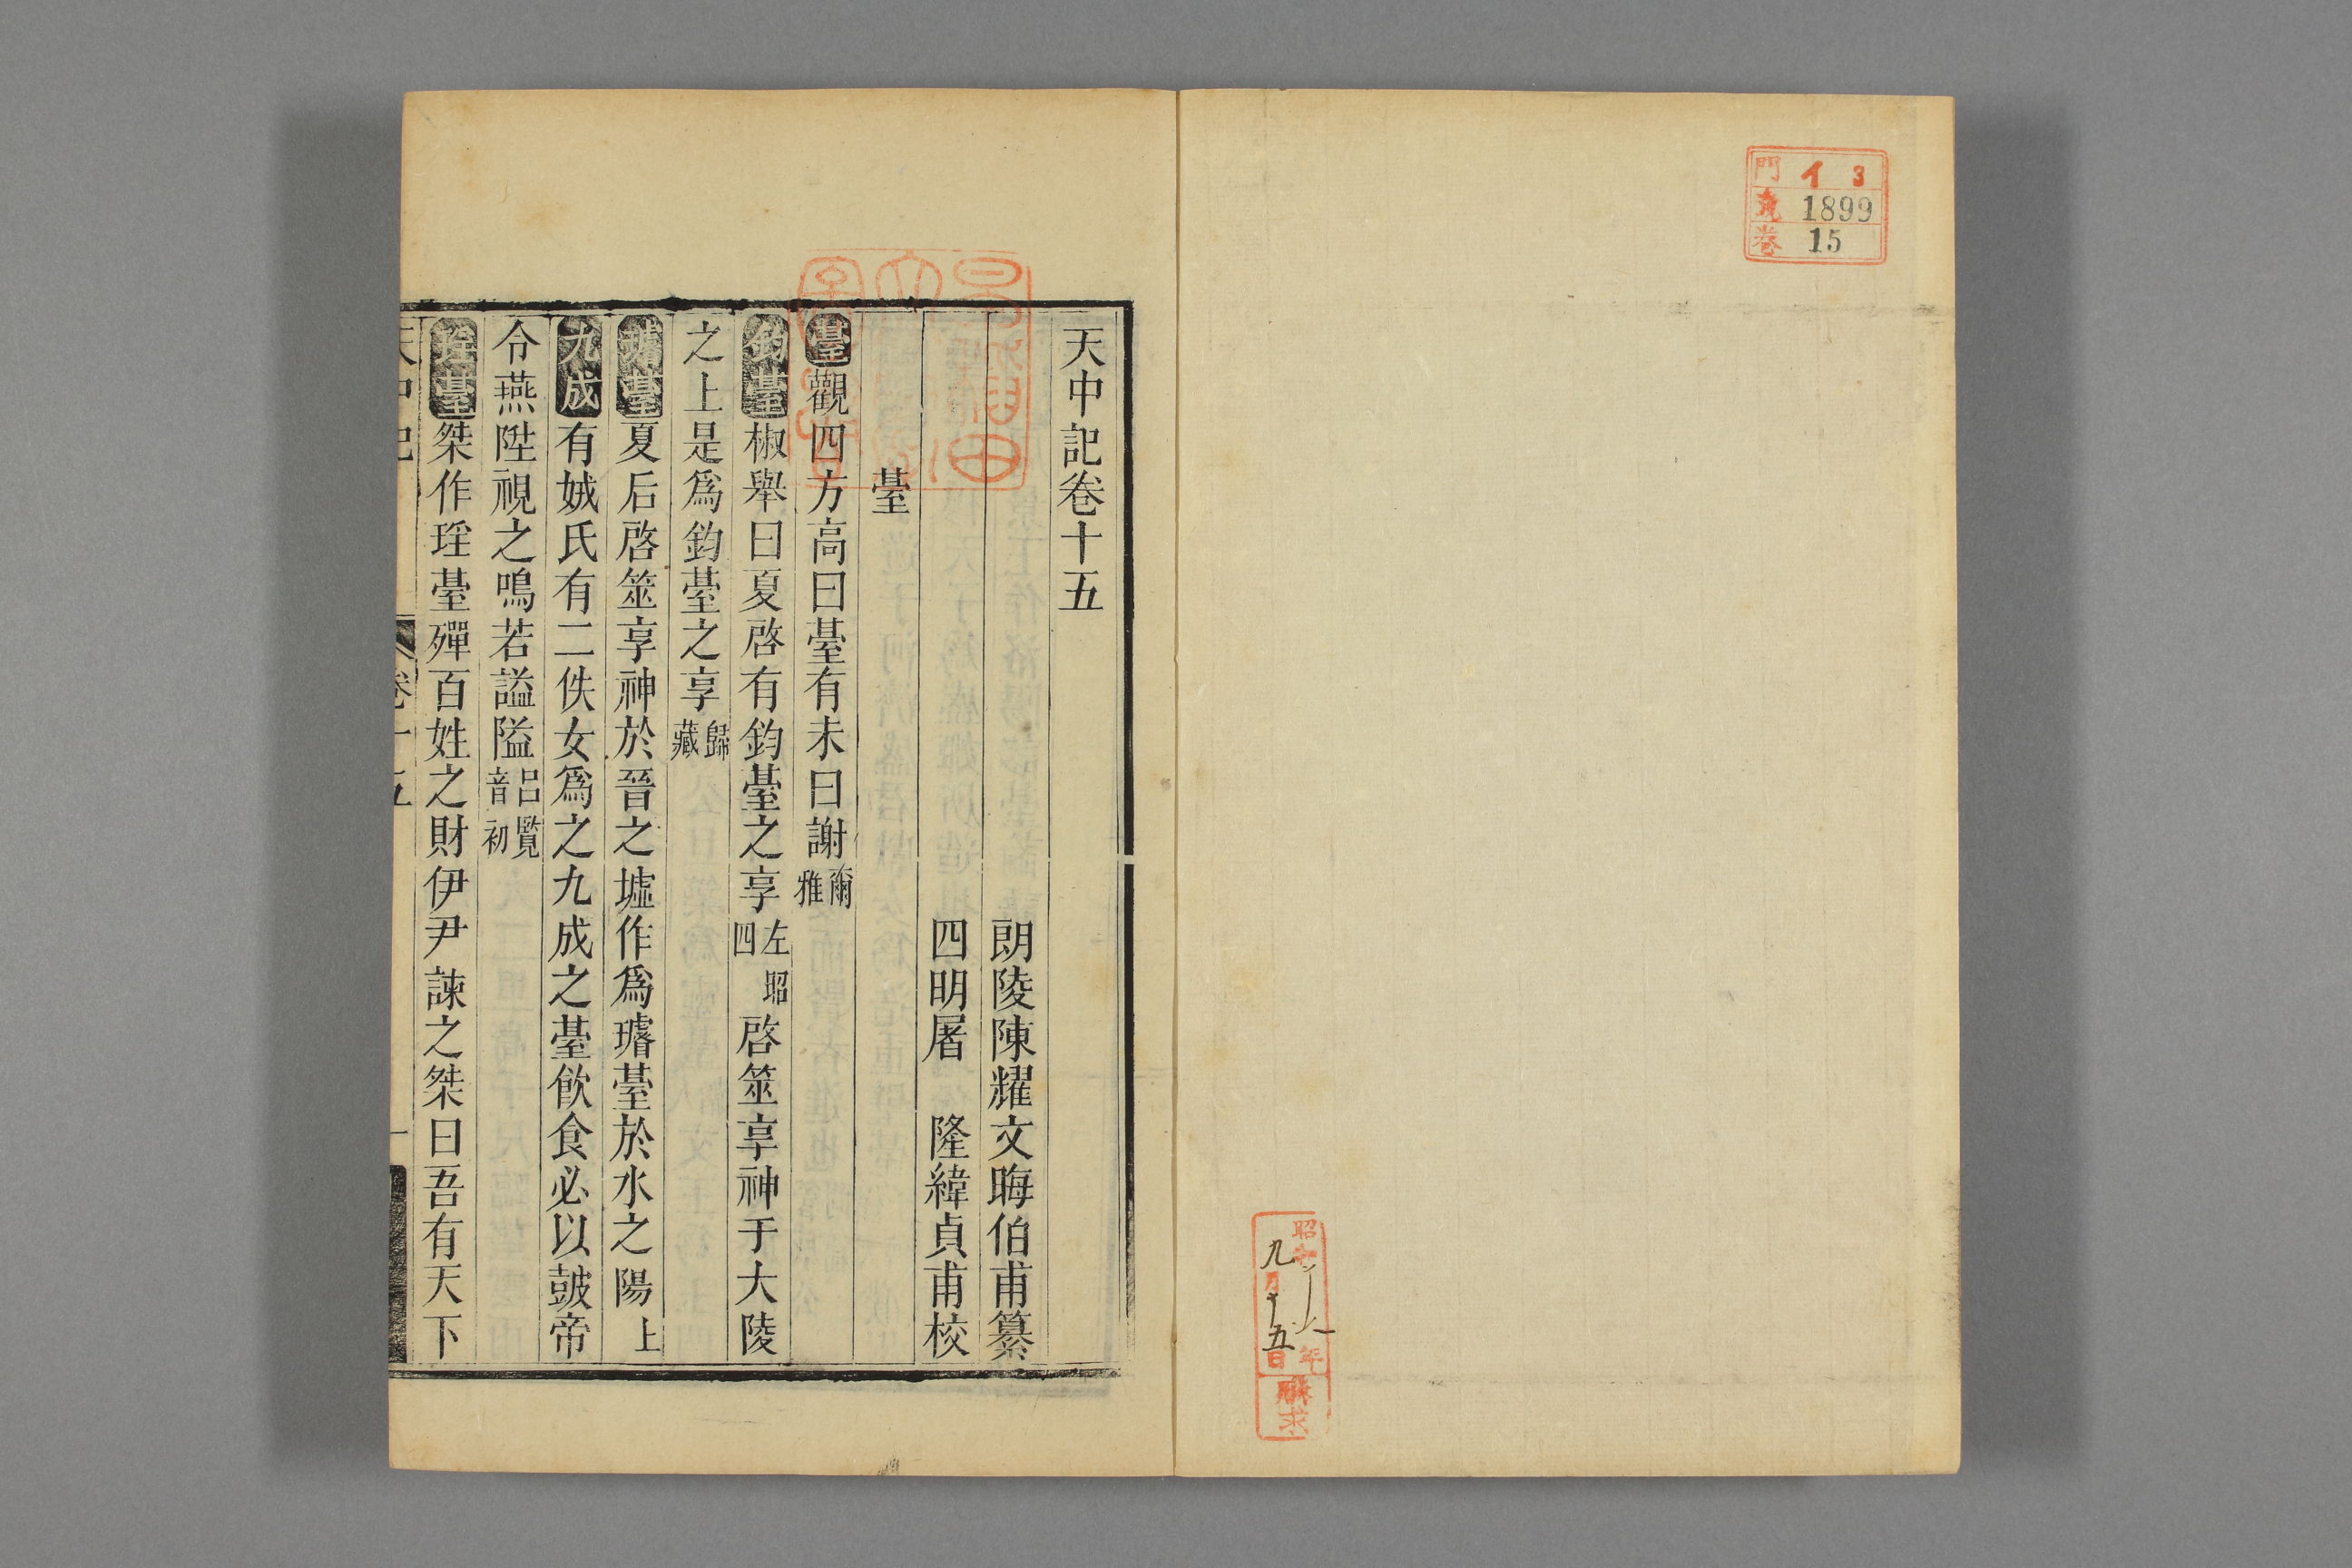 門 イ 3
1899
卷 15
昭和十一年
九月十五日
購求
天中記卷十五
朗陵陳耀文晦伯甫纂
四明屠　隆緯貞甫校
臺
臺觀四方高曰臺有未曰謝爾雅
鈞臺椒舉曰夏啓有鈞臺之享左昭四啓筮享神于大陵
之上是爲鈞臺之享歸藏
璿臺夏后啓筮享神於晉之墟作爲璿臺於水之陽上
九成有娀氏有二佚女爲之九成之臺飲食必以皷帝
令燕陞視之鳴若謚隘呂覽音初
瑤臺桀作瑤臺殫百姓之財伊尹諫之桀曰吾有天下
天中記
卷十五
一